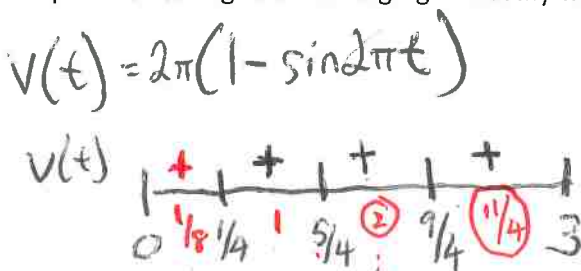 v(t) = 2π(1 - sin2πt)
v(t) + + + +
0 1/8 1/4 1 5/4 2 9/4 11/4 3